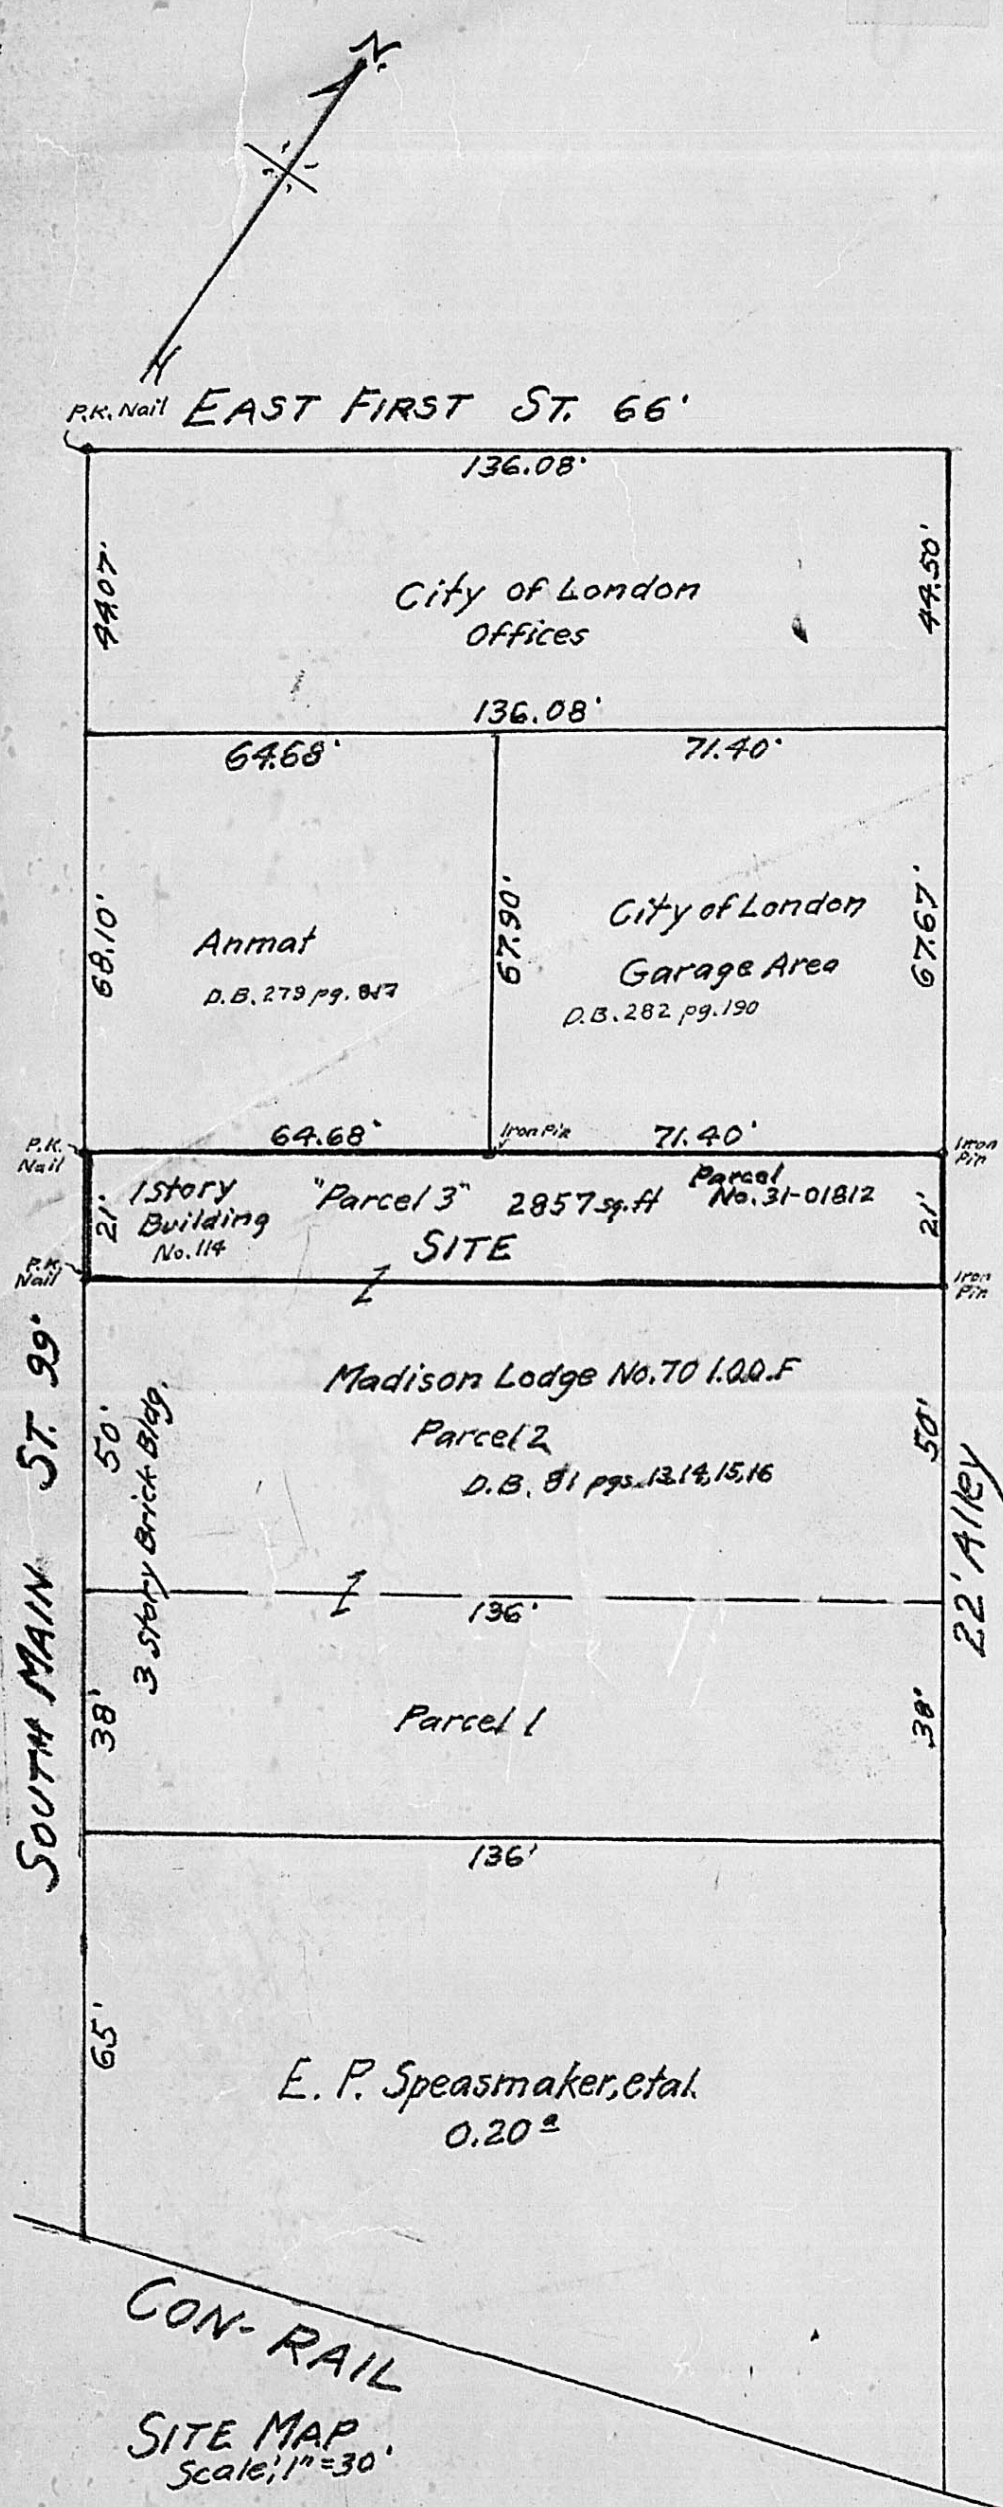 N.
P.K. Nail
EAST FIRST ST. 66'
136.08'
44.07'
44.50'
City of London
Offices
136.08'
64.68'
71.40'
68.10'
Anmat
D.B. 279 pg.
67.90'
City of London
Garage Area
D.B. 282 pg. 190
67.67'
64.68'
Iron Pin
71.40'
P.K.
Nail
Iron
Pin
21'
1 Story
Building
No. 114
"Parcel 3"
2857 sq. ft
Parcel
No. 31-01812
SITE
21'
P.K.
Nail
Iron
Pin
SOUTH MAIN ST. 99'
50'
3 Story Brick Bldg.
Madison Lodge No. 70 I.O.O.F
Parcel 2
D.B. 81 pgs. 13,14,15,16
50'
22' Alley
136'
38'
Parcel 1
38'
136'
65'
E. P. Speasmaker, etal.
0.20 a
CON-RAIL
SITE MAP
Scale; 1"=30'